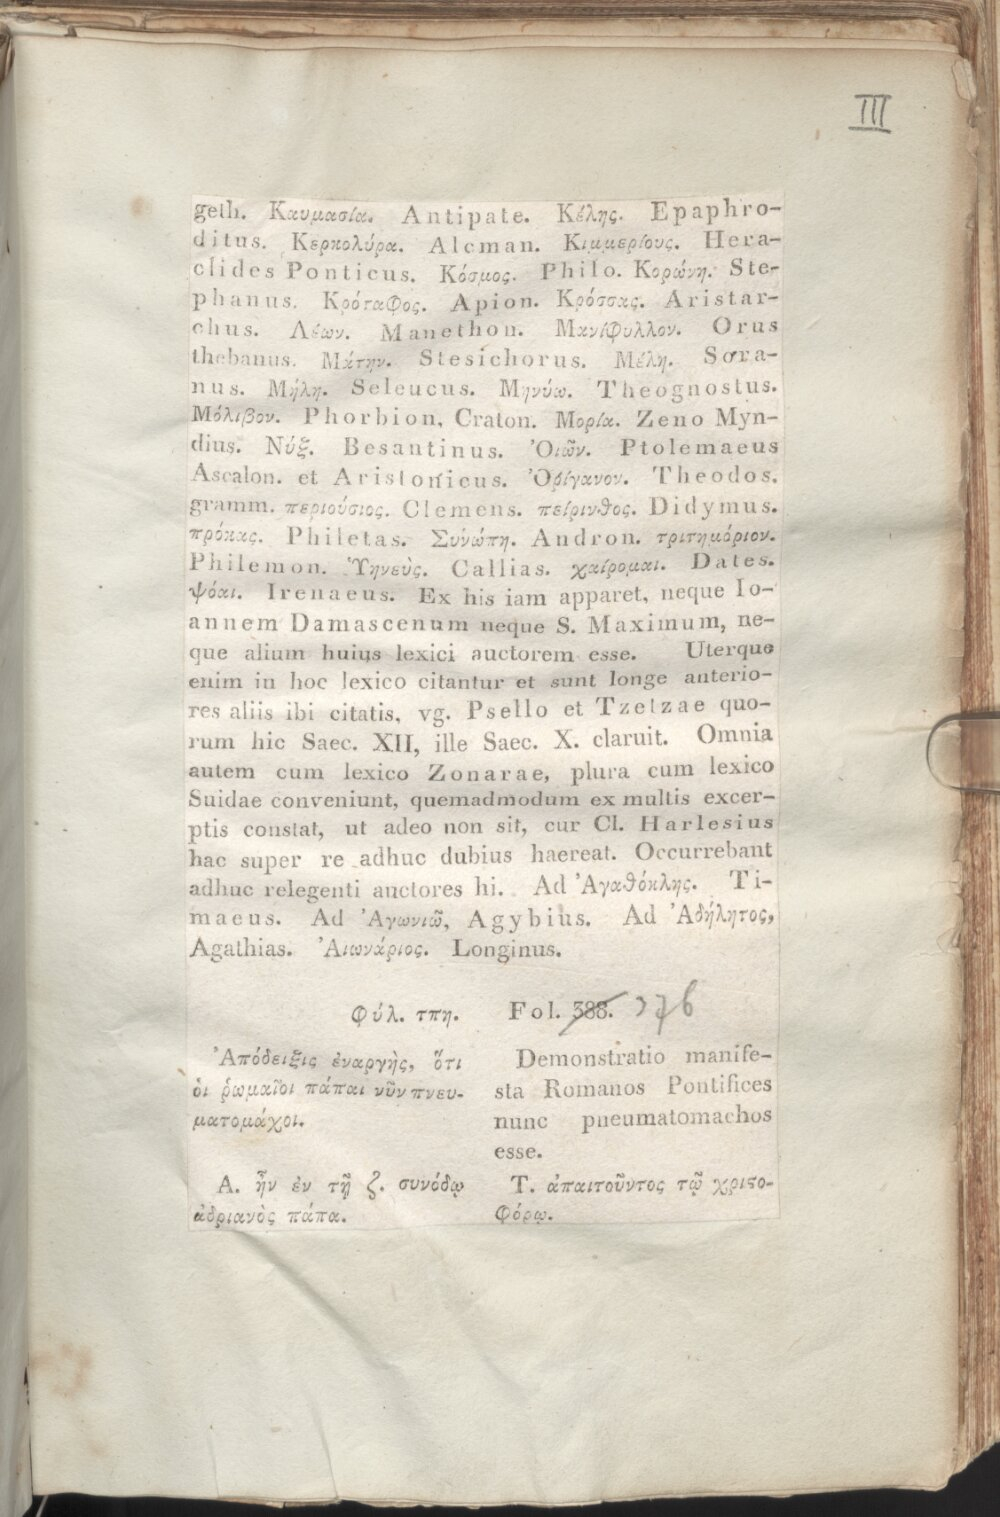 III
geth. Καυμασία. Antipate. Κέλης. Epaphro-
ditus. Κερκολύρα. Alcman. Κιμμερίους. Hera-
clides Ponticus. Κόσμος. Philo. Κορώνη. Ste-
phanus. Κρόταφος. Apion. Κρόσσας. Aristar-
chus. Λέων. Manethon. Μανίφυλλον. Orus
thebanus. Μάτην. Stesichorus. Μέλη. Sora-
nus. Μήλη. Seleucus. Μηνύω. Theognostus.
Μόλιβον. Phorbion, Craton. Μορία. Zeno Myn-
dius. Νύξ. Besantinus. Ὀιῶν. Ptolemaeus
Ascalon. et Aristonicus. Ὀρίγανον. Theodos.
gramm. περιούσιος. Clemens. πείρινθος. Didymus.
πρόκας. Philetas. Συνώπη. Andron. τριτημόριον.
Philemon. Ὑηνεὺς. Callias. χαίρομαι. Dates.
ψόαι. Irenaeus. Ex his iam apparet, neque Io-
annem Damascenum neque S. Maximum, ne-
que alium huius lexici auctorem esse. Uterque
enim in hoc lexico citantur et sunt longe anterio-
res aliis ibi citatis, vg. Psello et Tzetzae quo-
rum hic Saec. XII, ille Saec. X. claruit. Omnia
autem cum lexico Zonarae, plura cum lexico
Suidae conveniunt, quemadmodum ex multis excer-
ptis constat, ut adeo non sit, cur Cl. Harlesius
hac super re adhuc dubius haereat. Occurrebant
adhuc relegenti auctores hi. Ad Ἀγαθόκλης. Ti-
maeus. Ad Ἀγωνιῶ, Agybius. Ad Ἀδήλητος,
Agathias. Ἀιωνάριος. Longinus.
Φύλ. τπη. Fol. 388. 376
Ἀπόδειξις ἐναργὴς, ὅτι
ὁι ῥωμαῖοι πάπαι νῦν πνευ-
ματομάχοι.
Demonstratio manife-
sta Romanos Pontifices
nunc pneumatomachos
esse.
Α. ἦν ἐν τῇ ζ. συνόδῳ
ἀδριανὸς πάπα.
Τ. ἀπαιτοῦντος τῷ χριστο-
φόρῳ.